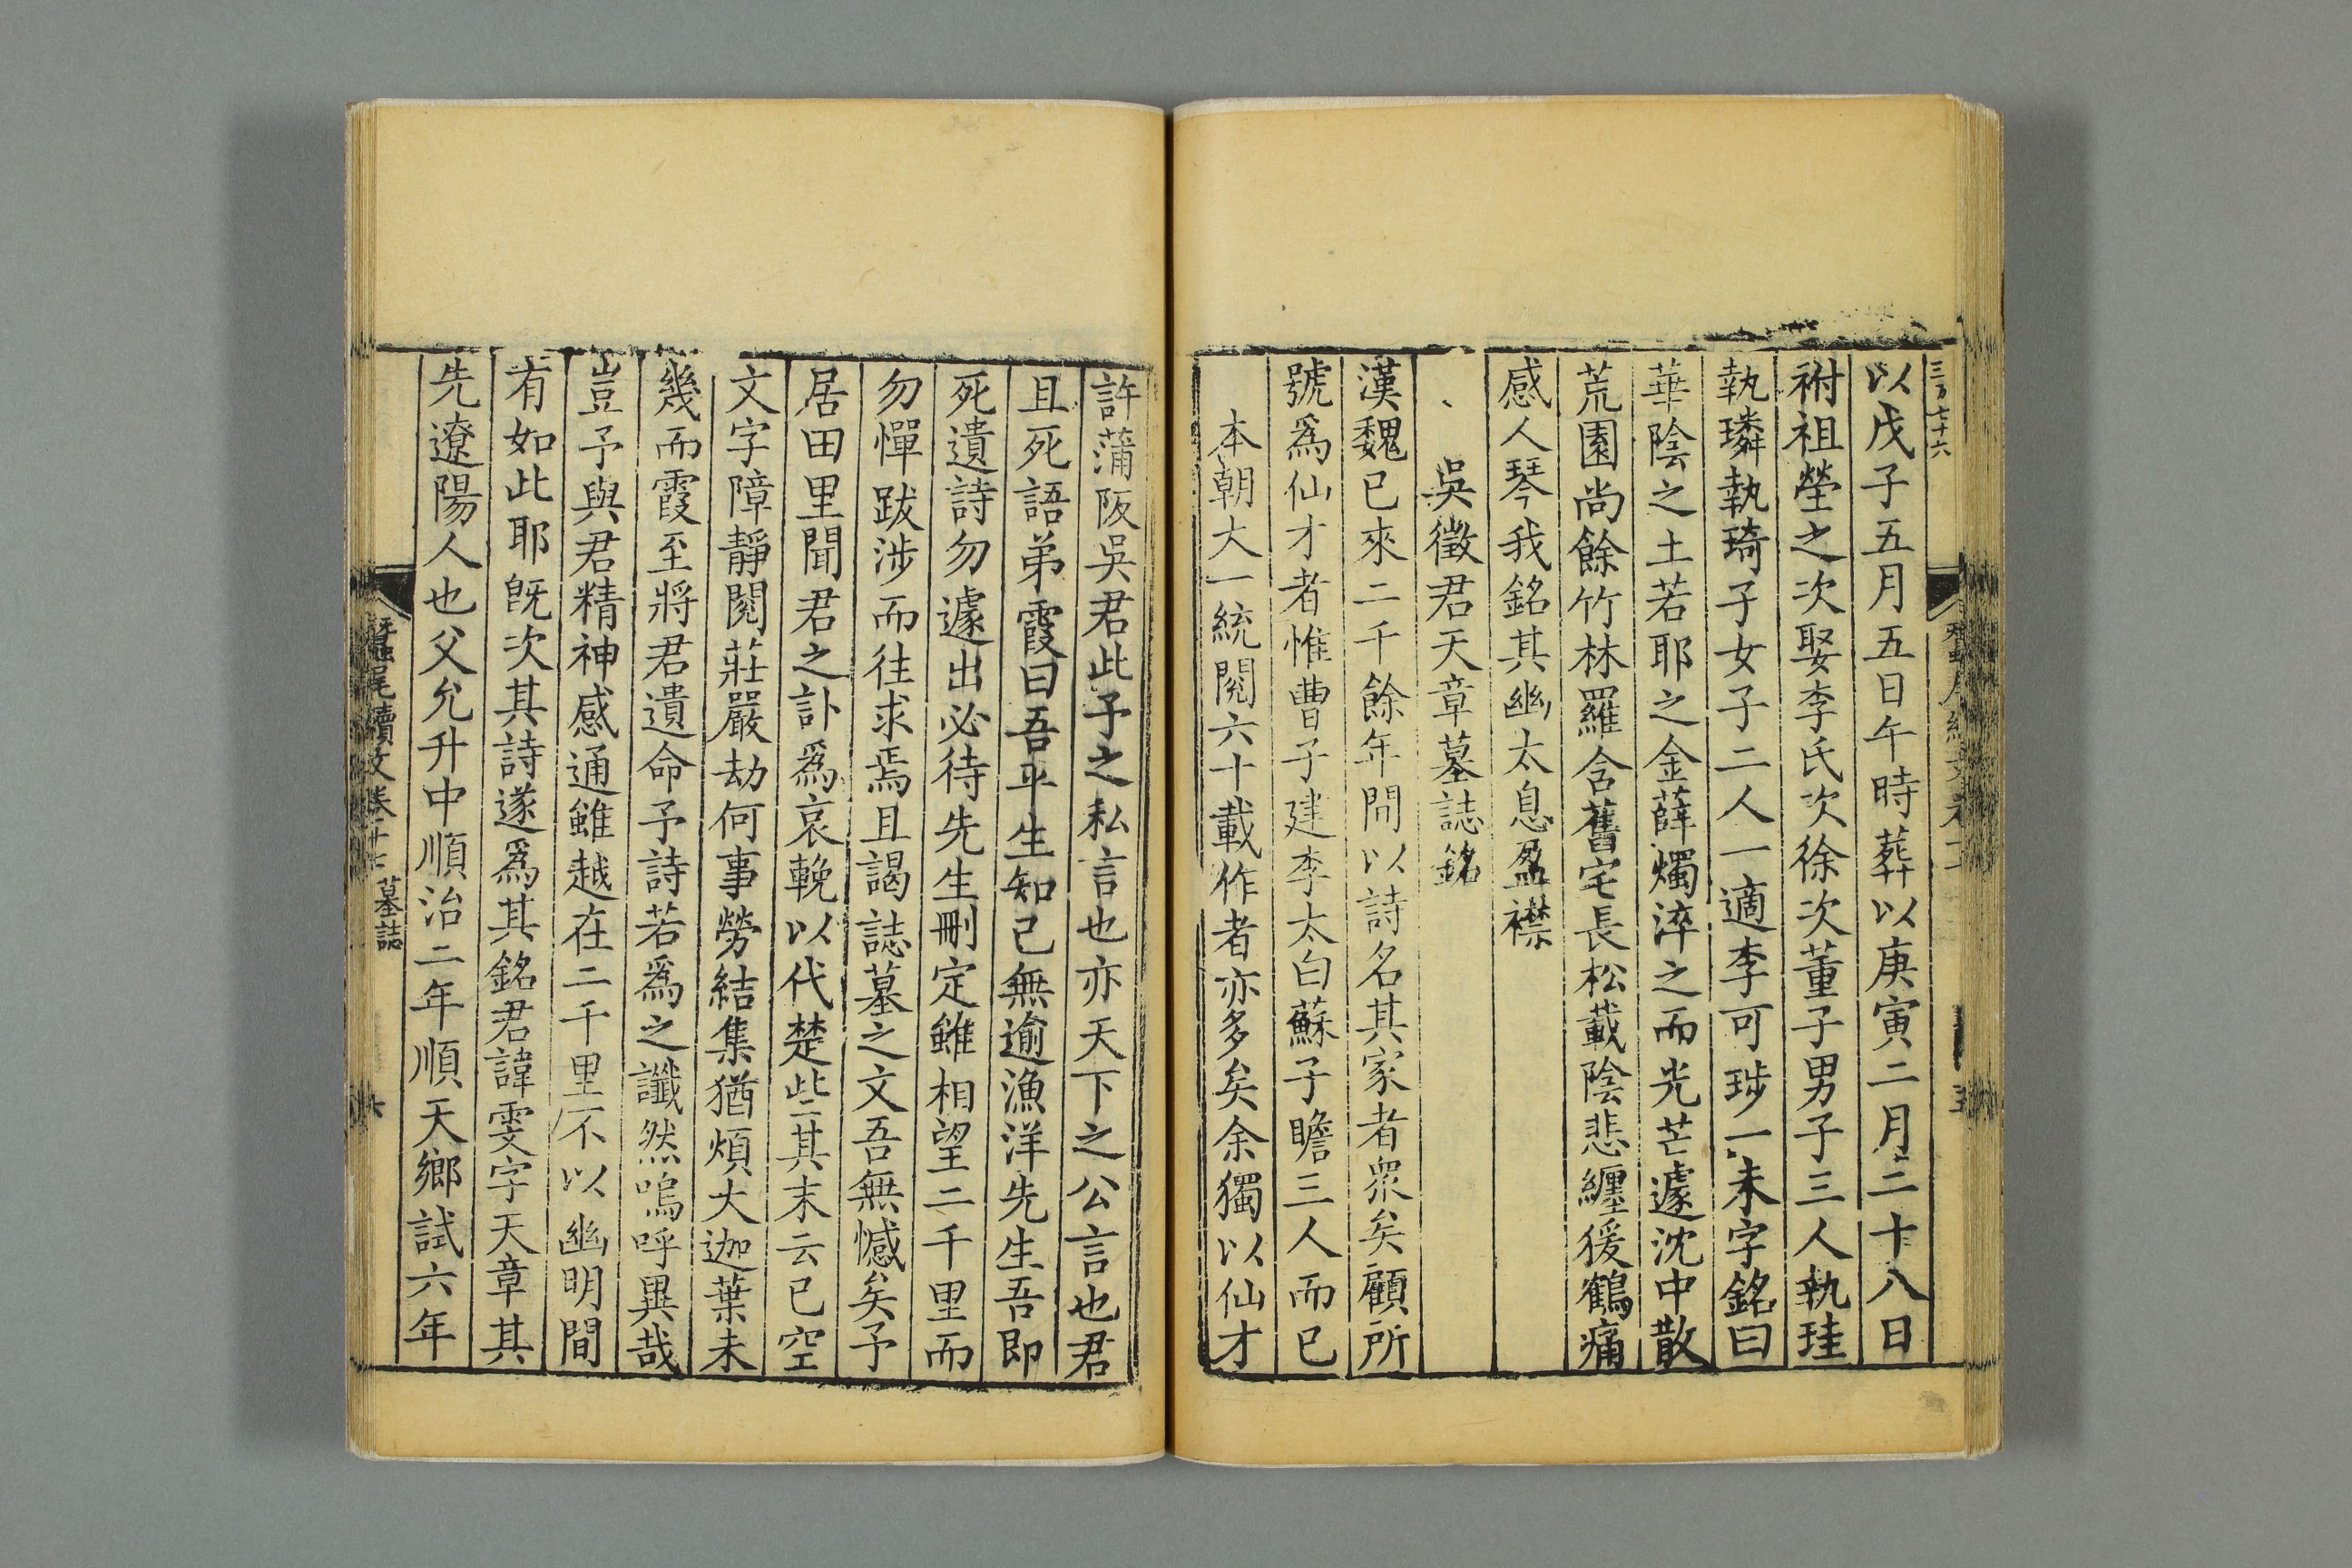 三百七十六
以戊子五月五日午時葬以庚寅二月二十八日
祔祖塋之次娶李氏次徐次董子男子三人執珪
執璘執琦子女子二人一適李可珍一未字銘曰
華陰之土若耶之金薛燭淬之而光芒遽沈中散
荒園尚餘竹林羅含舊宅長松載陰悲纏猨鶴痛
感人琴我銘其幽太息盈襟
吳徵君天章墓誌銘
漢魏已來二千餘年間以詩名其家者衆矣顧所
號爲仙才者惟曹子建李太白蘇子瞻三人而已
本朝大一統閱六十載作者亦多矣余獨以仙才
許蒲阪吳君此予之私言也亦天下之公言也君
且死語弟霞曰吾平生知己無逾漁洋先生吾即
死遺詩勿遽出必待先生刪定雖相望二千里而
勿憚跋涉而往求焉且謁誌墓之文吾無憾矣予
居田里聞君之訃爲哀輓以代楚些其末云已空
文字障靜閱莊嚴劫何事勞結集猶煩大迦葉未
幾而霞至將君遺命予詩若爲之讖然嗚呼異哉
豈予與君精神感通雖越在二千里不以幽明間
有如此耶旣次其詩遂爲其銘君諱雯字天章其
先遼陽人也父允升中順治二年順天鄉試六年
蠶尾續文卷十七 墓誌 六